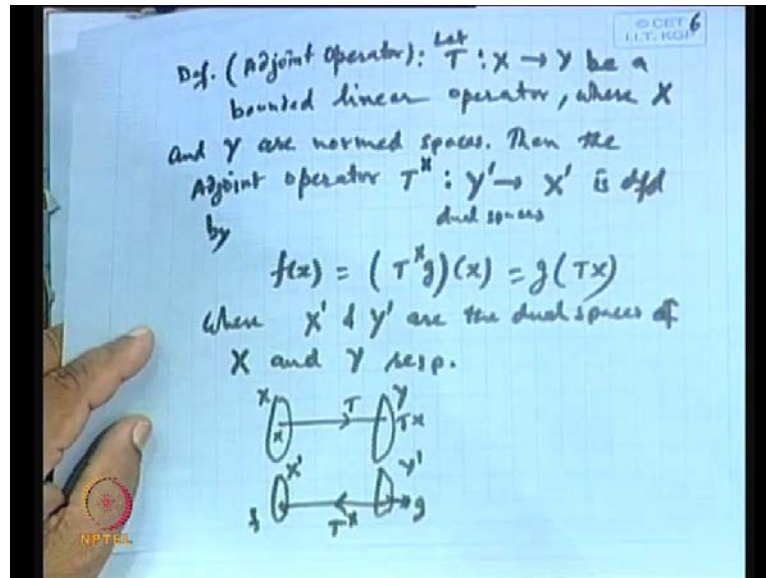 © CET 6
I.I.T. KGP
Def. (Adjoint Operator): Let T : X → Y be a
bounded linear operator, where X
and Y are normed spaces. Then the
Adjoint operator T^x : Y' → X' is dfd
dual spaces
by
f(x) = (T^x g)(x) = g(Tx)
where X' & Y' are the dual spaces of
X and Y resp.
X T Y
x Tx
X' Y'
f T^x g
NPTEL